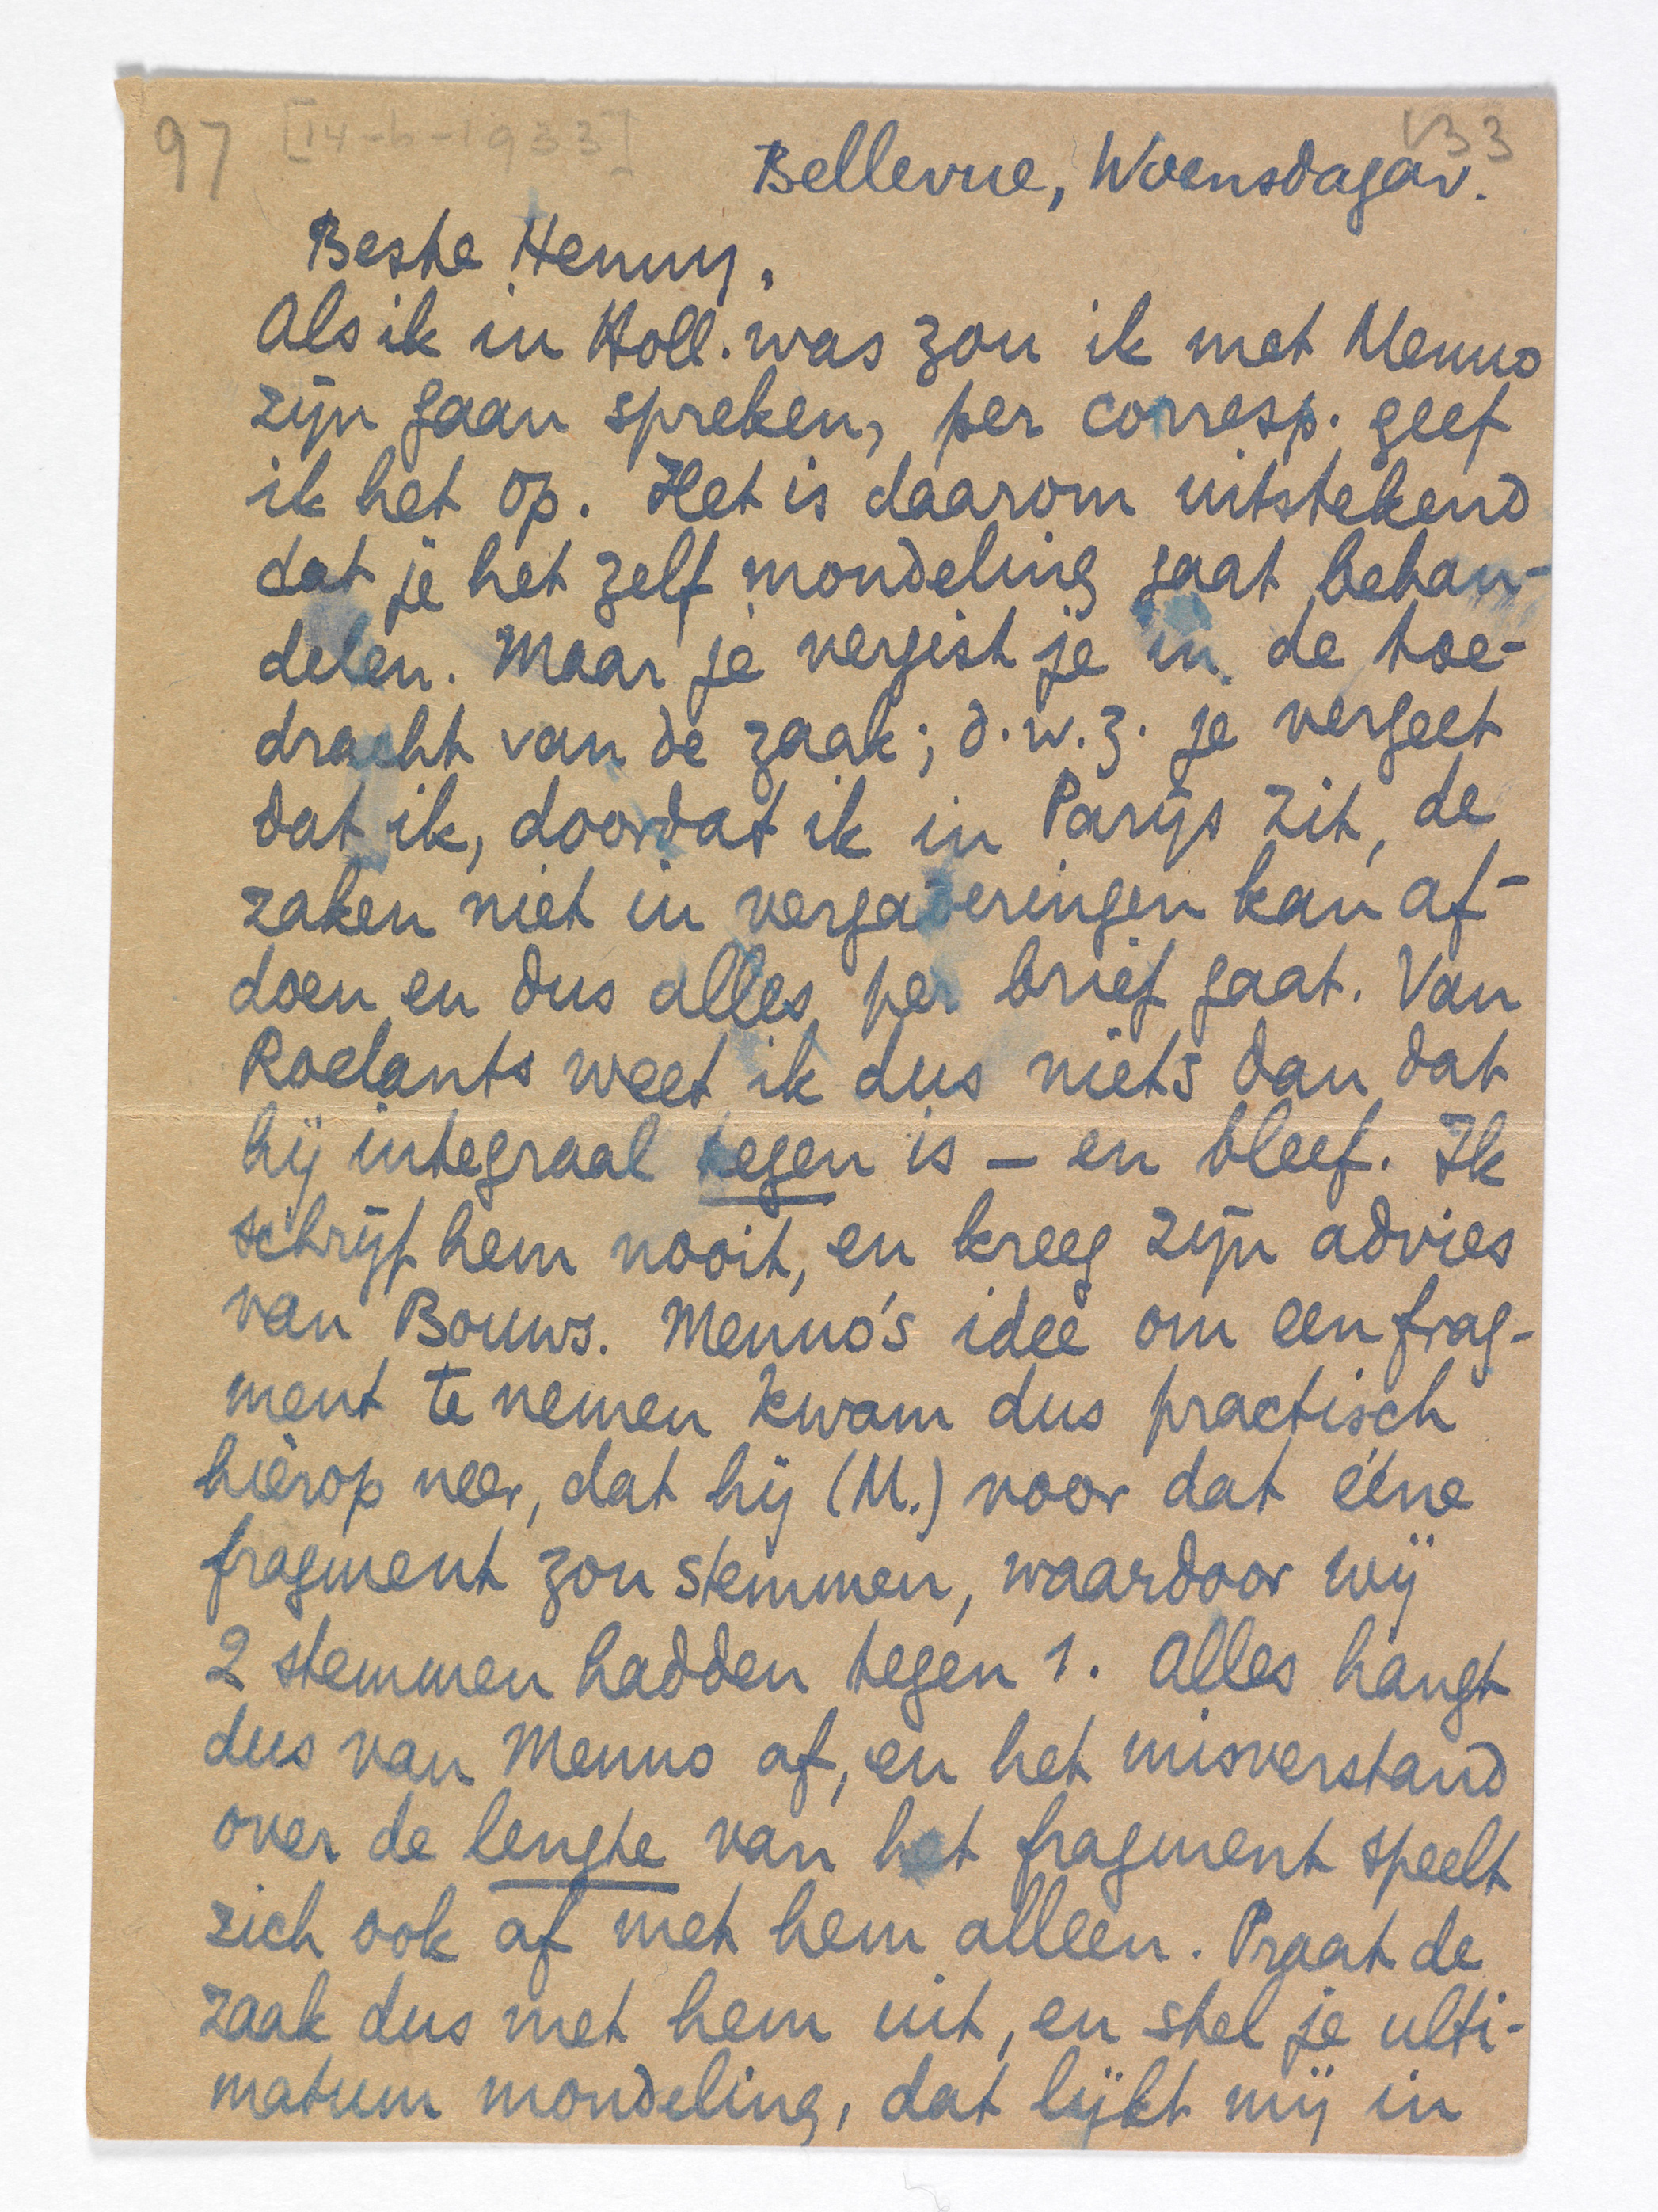 97 [14-6-1933] V33
Bellevue, Woensdagav.
Beste Henny,
Als ik in Holl. was zou ik met Menno
zijn gaan spreken, per corresp. geef
ik het op. Het is daarom uitstekend
dat je het zelf mondeling gaat behan-
delen. Maar je vergist je in de toe-
dracht van de zaak; d.w.z. je vergeet
dat ik, doordat ik in Parijs zit, de
zaken niet in vergaderingen kan af-
doen en dus alles per brief gaat. Van
Roelants weet ik dus niets dan dat
hij integraal tegen is – en bleef. Ik
schrijf hem nooit, en kreeg zijn advies
van Bouws. Menno's idee om een frag-
ment te nemen kwam dus practisch
hierop neer, dat hij (M.) voor dat ééne
fragment zou stemmen, waardoor wij
2 stemmen hadden tegen 1. Alles hangt
dus van Menno af, en het misverstand
over de lengte van het fragment speelt
zich ook af met hem alleen. Praat de
zaak dus met hem uit, en stel je ulti-
matum mondeling, dat lijkt mij in